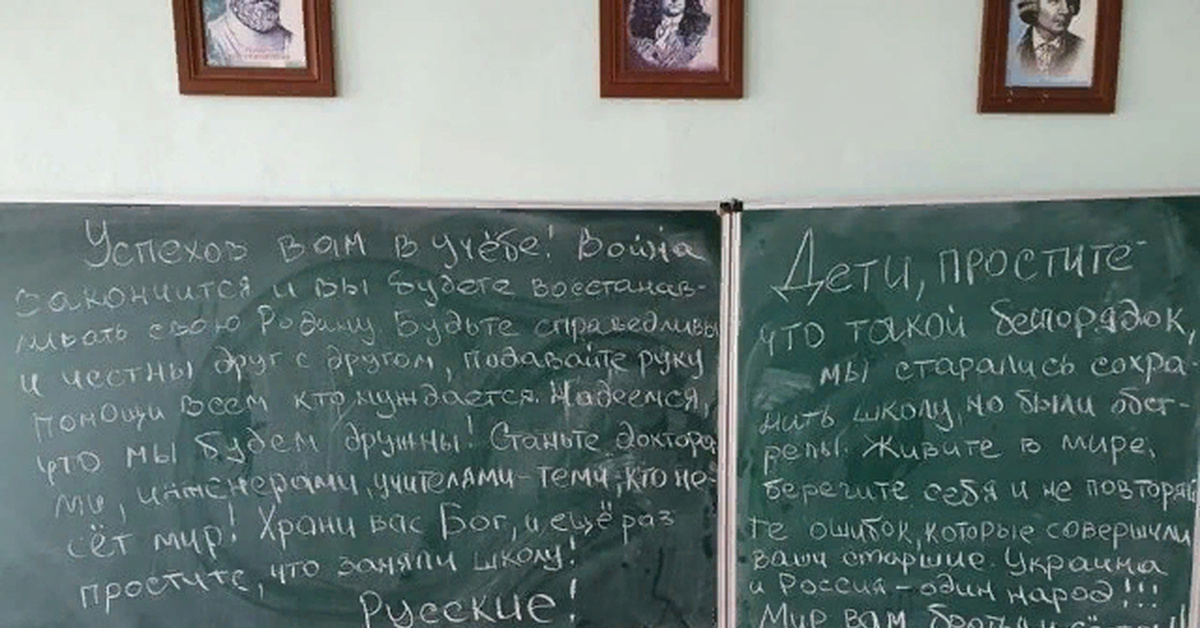 Успехов вам в учёбе! Война
закончится и вы будете восстанав-
ливать свою Родину. Будьте справедливы
и честны друг с другом, подавайте руку
помощи всем кто нуждается. Надеемся,
что мы будем дружны! Станьте доктора
ми, инженерами, учителями - теми, кто не-
сёт мир! Храни вас Бог, и ещё раз
простите, что заняли школу!
Русские!
Дети, простите
что такой беспорядок,
мы старались сохра-
нить школу, но были обст-
релы. Живите в мире,
берегите себя и не повторяй
те ошибок, которые совершили
ваши старшие. Украина
и Россия - один народ!!!
Мир вам братья и